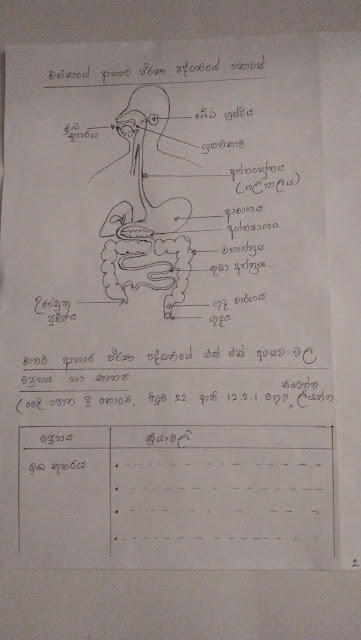 මිනිසාගේ ආහාර ජීරණ පද්ධතියේ කොටස්
ඛේට ග්‍රන්ථිය
මුඛ
කුහරය
ග්‍රසනිකාව
අන්නස්‍රෝතය
(ගලනාලය)
ආමාශය
අග්න්‍යාශය
මහාන්ත්‍රය
කුඩා අන්ත්‍රය
උණ්ඩුක
පුච්ඡය
ගුද මාර්ගය
ගුදය
මානව ආහාර ජීරණ පද්ධතියේ එක් එක් අවයව වල
ව්‍යුහය හා කෘත්‍ය
සටහන්
(පෙළ පොත කොටස, පිටුව 22 ඇති 12.2.1 වගුව ලියන්න.
ව්‍යුහය
ක්‍රියාවලි
මුඛ කුහරය
2